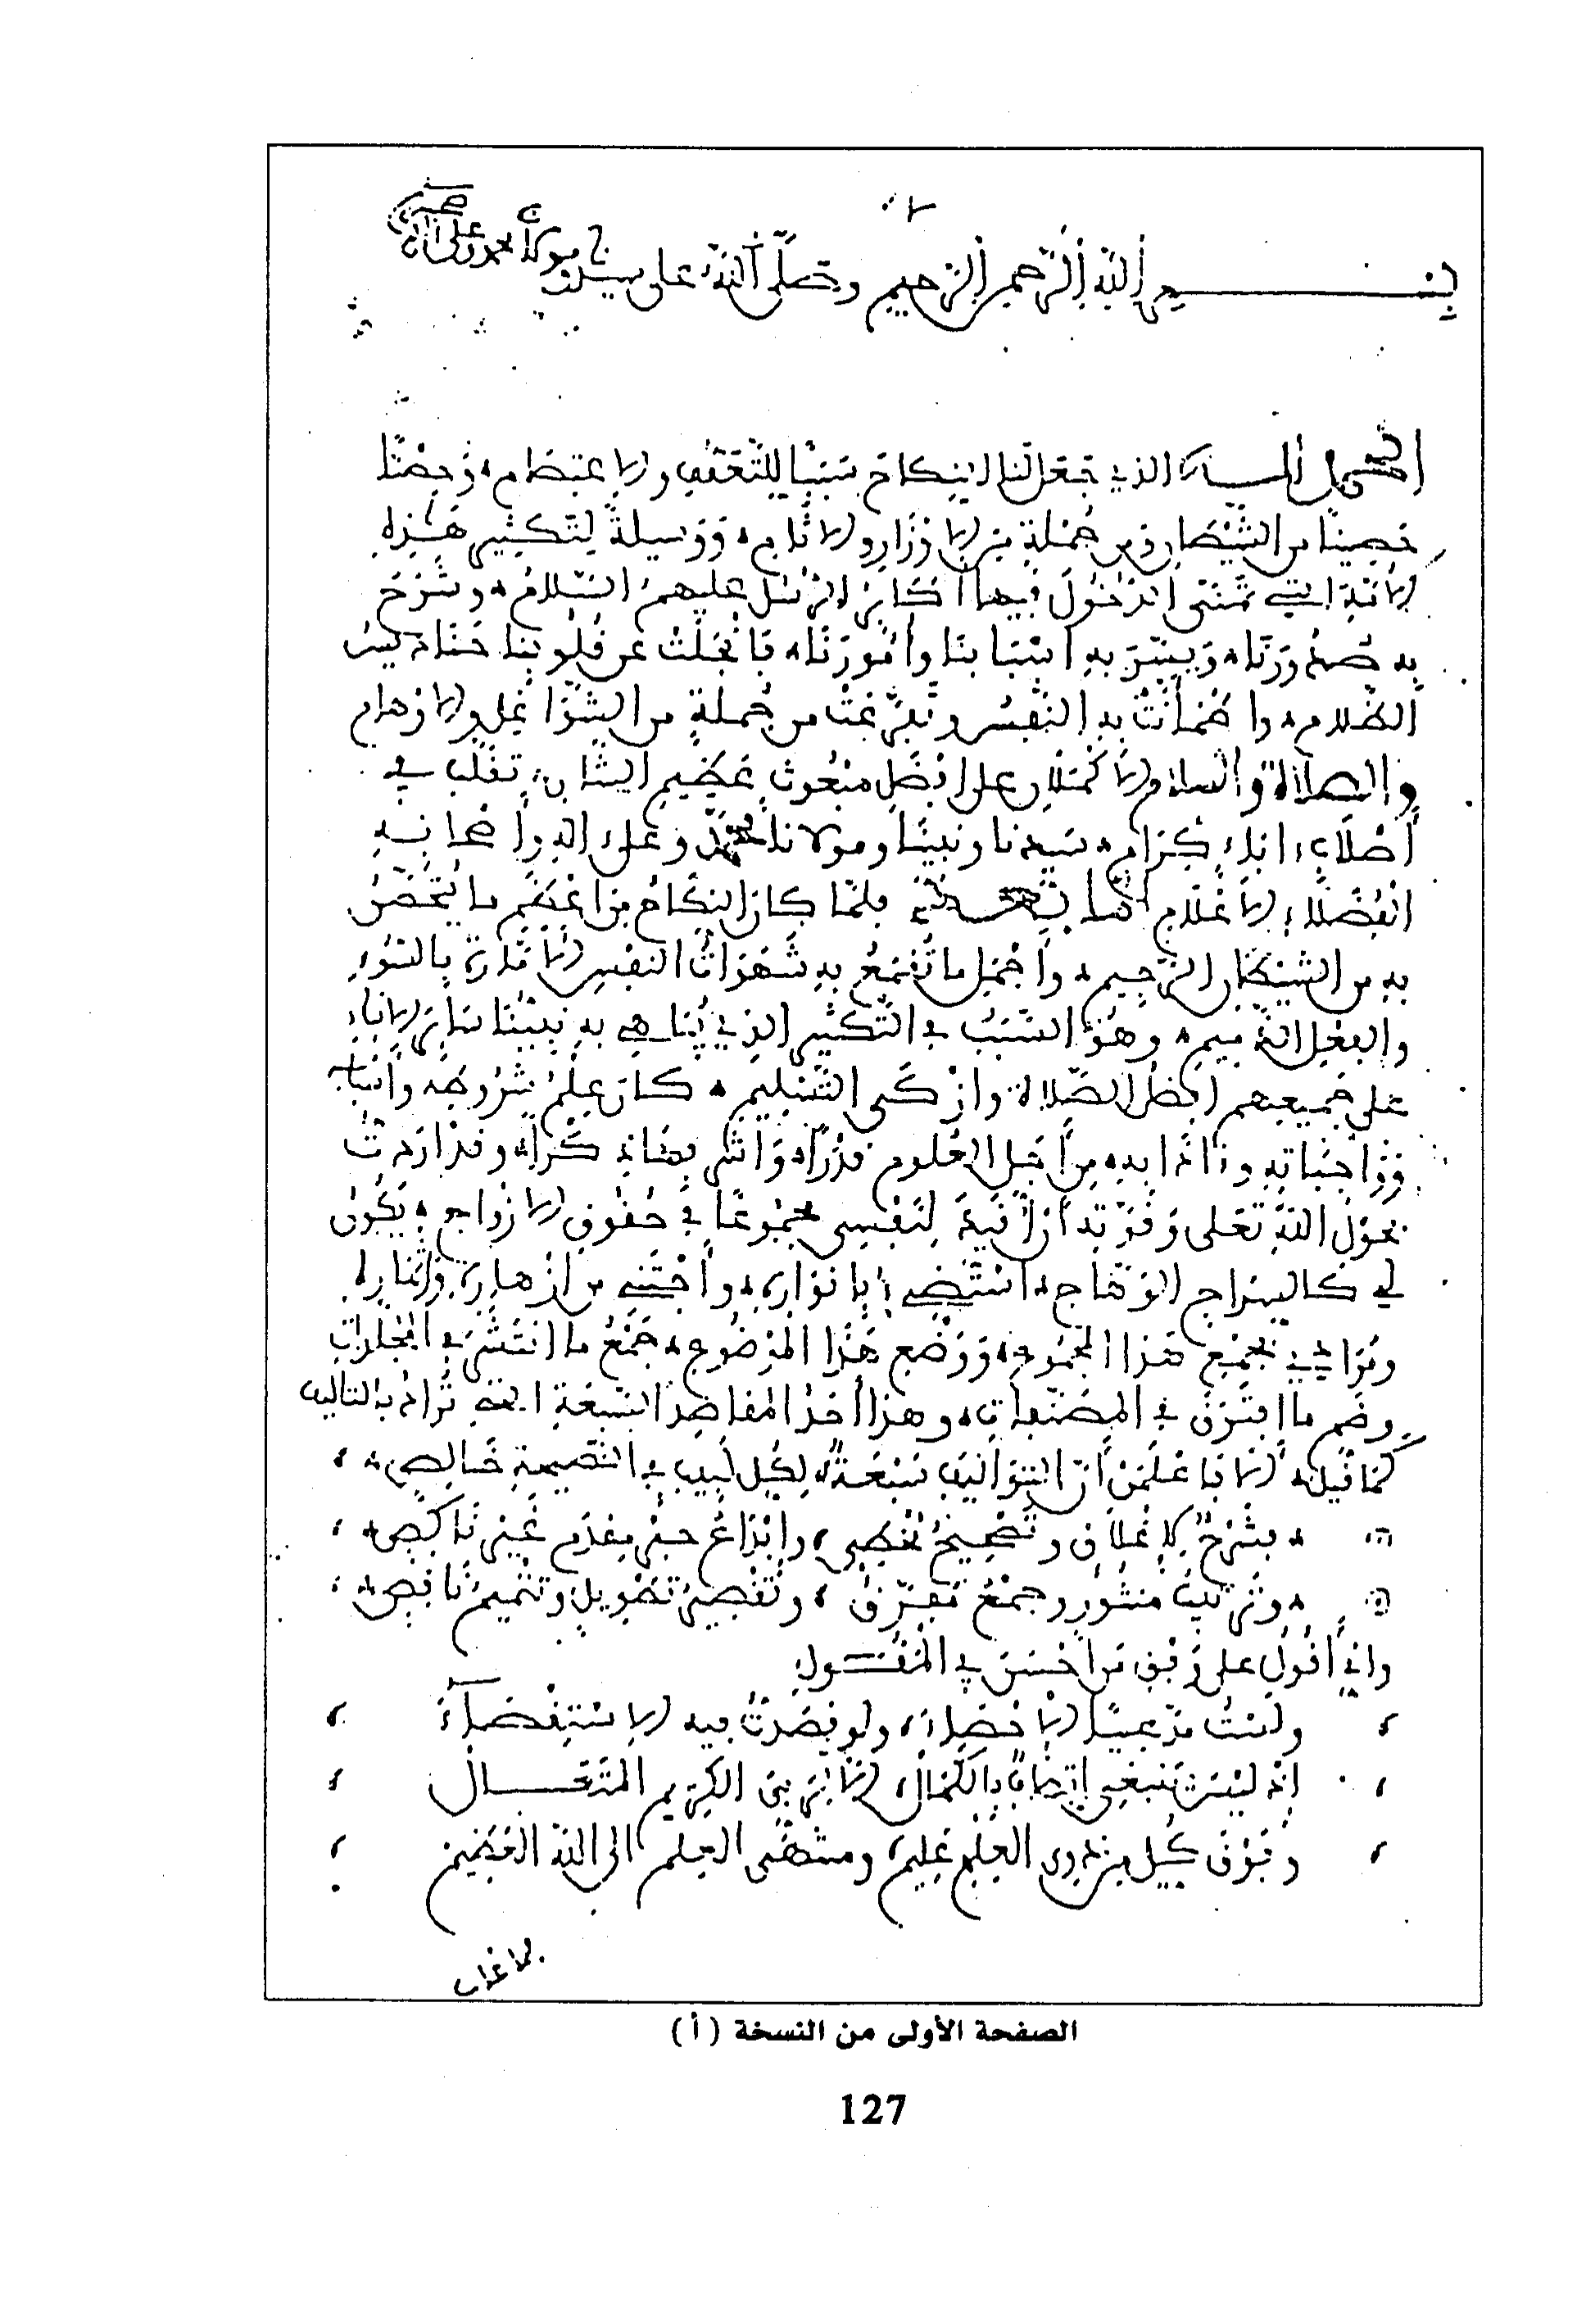 بسم الله الرحمن الرحيم وصلى الله على سيدنا ومولانا محمد وعلى آله
الحمد لله الذي جعل لنا النكاح سببا للتعفف والاعتصام، وحصنا
حصينا من الشيطان ومن جملة من الاوزار والاثام، ووسيلة لتكثير هذه
الأمة التي تمنى الدخول فيها أكابر الرسل عليهم السلام، وشرح
به صدورنا، ويسر به أسبابنا وأمورنا، فانجلت عن قلوبنا
الظلام، واطمأنت به النفس وتفرغت من جملة من الشواغل والاوهام
والصلاة والسلام الأكملان على افضل مبعوث عظيم الشان، تقلب في
أصلاب اباء كرام، سيدنا ونبينا ومولانا محمد وعلى اله وأصحابه
الفضلاء الأعلام أما بعد فلما كان النكاح من اعظم ما يتحصن
به من الشيطان الرجيم، وأجمل ما تقمع به شهوات النفس الأمارة بالسوء
والفعل الذميم، وهو السبب في التكثير الذي يباهي به نبينا سائر الانبياء
على جميعهم افضل الصلاة وازكى التسليم، كان علم شروطه وأسبابه
وواجباته وءادابه، من أجل العلوم قدرا، وأشرفها ذكرا، وقد اردت
بحول الله تعلى وقوته أن أقيد لنفسي مجموعا في حقوق الازواج، يكون
لي كالسراج الوهاج، استضيء بانواره، وأجتني من ازهاره وثماره
ومرادي بجمع هذا المجموع، ووضع هذا الموضوع، جمع ما انتشر في المجلدات
وضم ما افترق في المصنفات، وهذا أحد المقاصد السبعة التي تراد بالتاليف
كما قيل، ألا فاعلمن أن التواليف سبعة، لكل لبيب في النصيحة خالص،
فشرح لاغلاق وتصحيح مخطئ، وابداع حبر مقدم غير ناكص،
وترتيب منثور وجمع مفرق، وتقصير تطويل وتتميم ناقص،
واني أقول على وفق من احسن في المقول
ولست مدعيا الاحصاء، ولو قصدت فيه الاستقصاء
اذ ليس ينبغي اتصاف بالكمال، الا لربي الكريم المتعال
وفوق كل من ذوي العلم عليم، ومنتهى العلم الى الله العظيم
الصفحة الأولى من النسخة (أ)
127